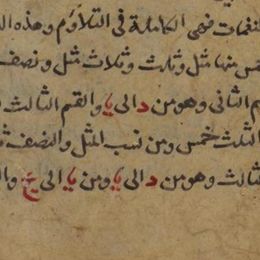 النغمات فهى الكاملة فى التلاؤم وهذه
خمس منها مثل وثلث وثلاث مثل ونصف
القسم الثانى وهو من د الى يا والقسم الثالث
الثلث خمس ومن نسب المثل والنصف
الثالث وهو من د الى يا ومن يا الى يح